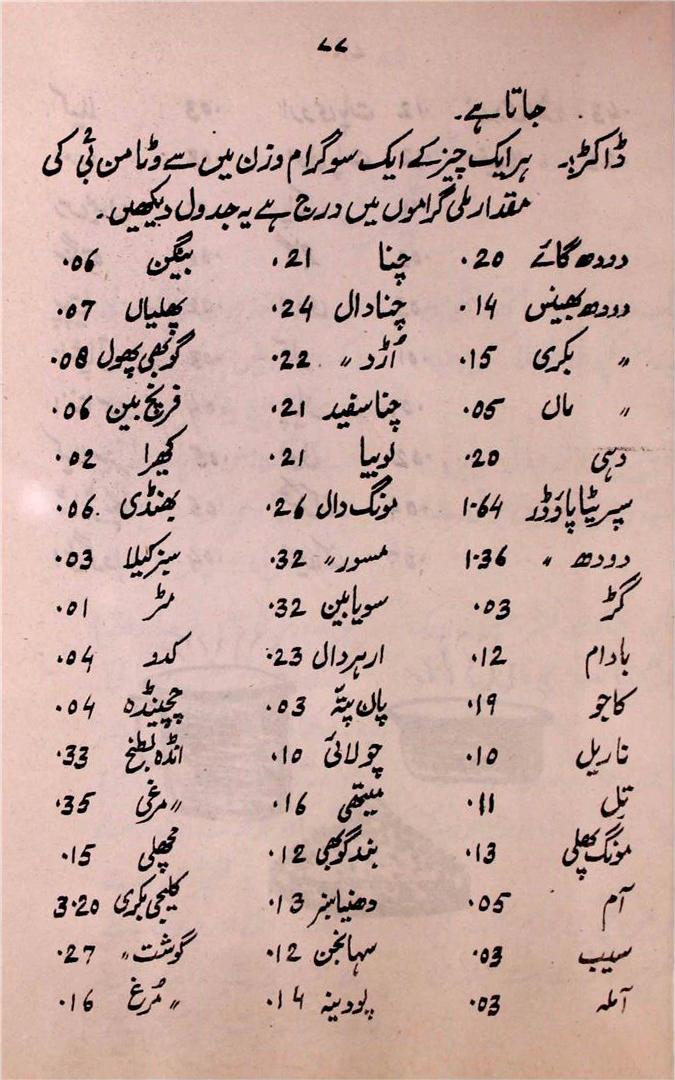 ۷۷
جاتا ہے۔
ڈاکٹر:۔ ہر ایک چیز کے ایک سو گرام وزن میں سے وٹامن بی کی
مقدار ملی گراموں میں درج ہے یہ جدول دیکھیں۔
دودھ گائے ۰20 چنا ۰21 بیگن ۰06
دودھ بھینس ۰14 چنا دال ۰24 پھلیاں ۰07
〃 بکری ۰15 اُڑد 〃 ۰22 گوبھی پھول ۰08
〃 ماں ۰05 چنا سفید ۰21 فریخ بین ۰06
دہی ۰20 لوبیا ۰21 کھیرا ۰02
سپریٹا پاوڈر 1۰64 مونگ دال ۰26 بھنڈی ۰06
دودھ 〃 1۰36 مسور 〃 ۰32 سبز کیلا ۰03
گڑ ۰03 سویابین ۰32 مٹر ۰01
بادام ۰12 ارہر دال ۰23 کدو ۰04
کاجو ۰19 پان پتّہ ۰03 چچینڈہ ۰04
ناریل ۰10 چولائی ۰10 انڈہ بطخ ۰33
تِل ۰11 میتھی ۰16 〃 مرغی ۰35
مونگ پھلی ۰13 بند گوبھی ۰12 مچھلی ۰15
آم ۰05 دھنیا سبز ۰13 کلیجی بکری 3۰20
سیب ۰03 سہانجن ۰12 گوشت 〃 ۰27
آملہ ۰03 پودینہ ۰14 〃 مُرغ ۰16